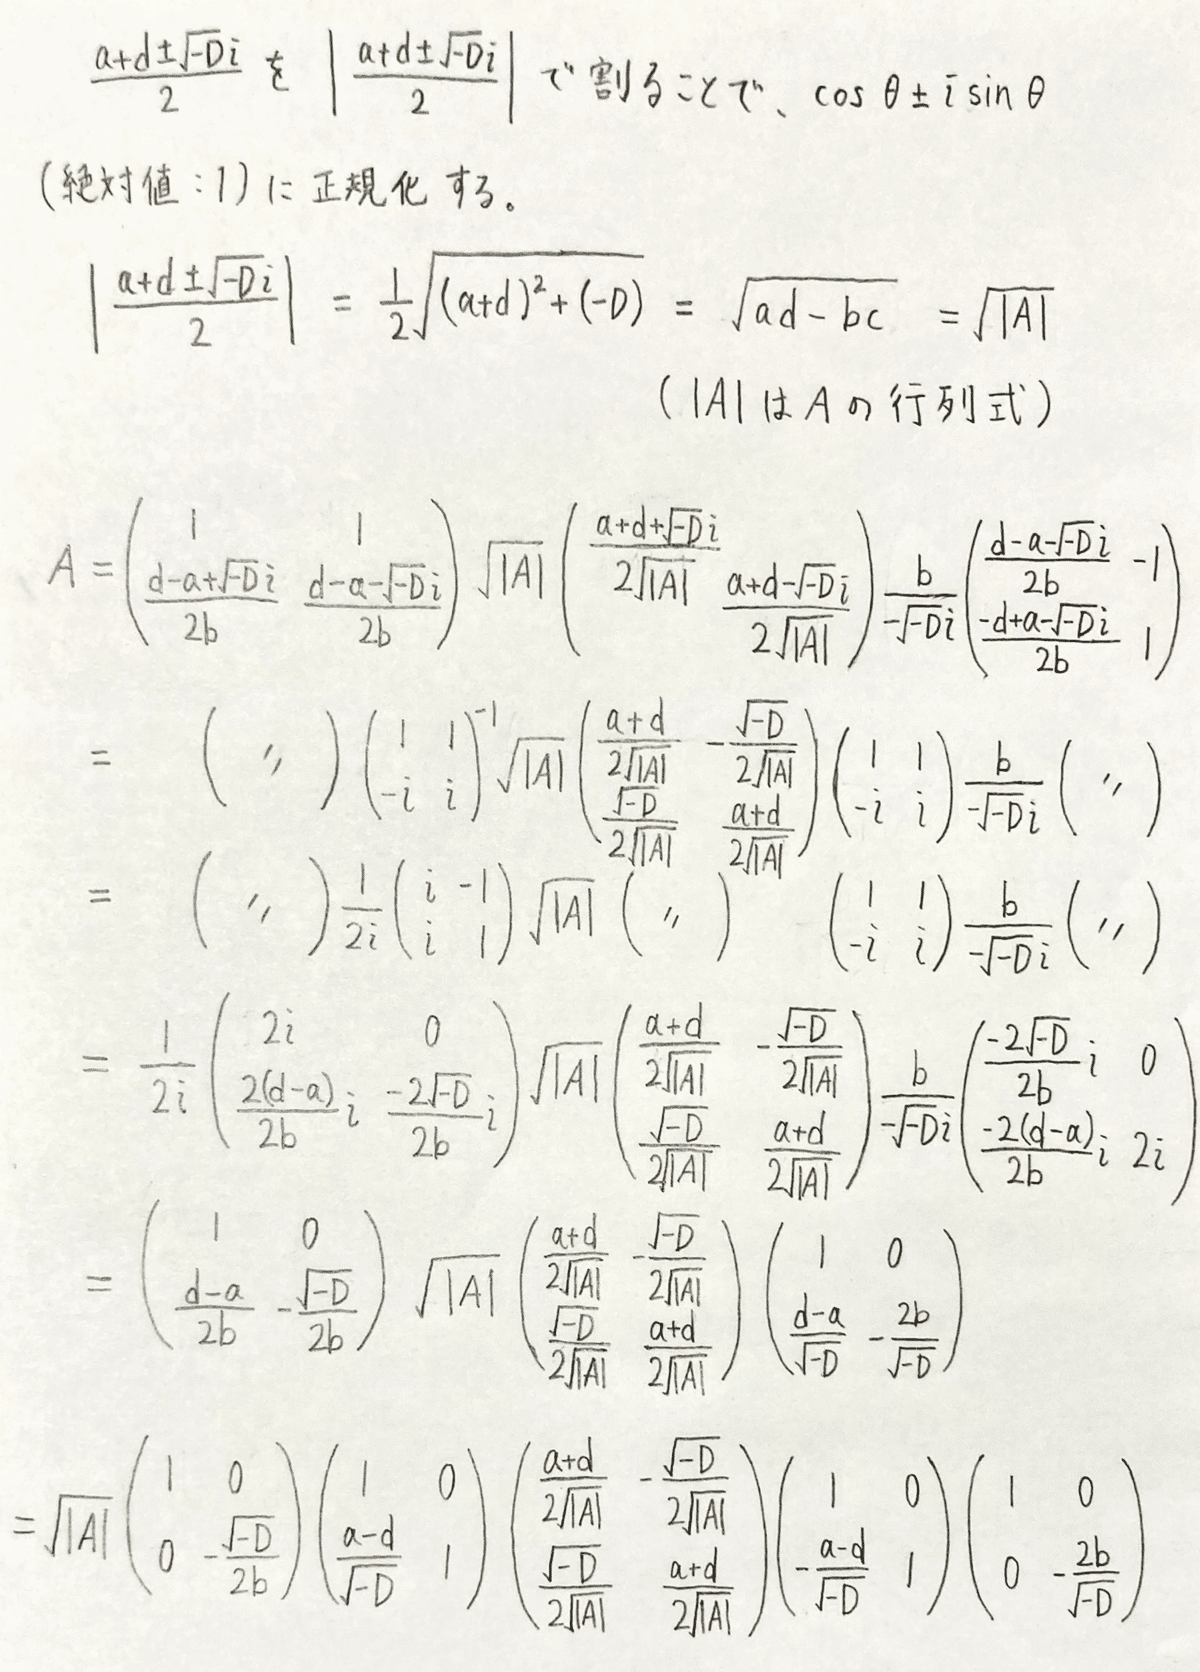 $\frac{a+d\pm\sqrt{-D}i}{2}$ を $\left|\frac{a+d\pm\sqrt{-D}i}{2}\right|$ で割ることで、$\cos\theta\pm i\sin\theta$
(絶対値:1)に正規化する。
$\left|\frac{a+d\pm\sqrt{-D}i}{2}\right| = \frac{1}{2}\sqrt{(a+d)^2+(-D)} = \sqrt{ad-bc} = \sqrt{|A|}$
(|A|はAの行列式)
$A = \begin{pmatrix} 1 & 1 \\ \frac{d-a+\sqrt{-D}i}{2b} & \frac{d-a-\sqrt{-D}i}{2b} \end{pmatrix} \sqrt{|A|} \begin{pmatrix} \frac{a+d+\sqrt{-D}i}{2\sqrt{|A|}} & \\ & \frac{a+d-\sqrt{-D}i}{2\sqrt{|A|}} \end{pmatrix} \frac{b}{-\sqrt{-D}i} \begin{pmatrix} \frac{d-a-\sqrt{-D}i}{2b} & -1 \\ \frac{-d+a-\sqrt{-D}i}{2b} & 1 \end{pmatrix}$
$= \begin{pmatrix} 〃 \end{pmatrix} \begin{pmatrix} 1 & 1 \\ -i & i \end{pmatrix}^{-1} \sqrt{|A|} \begin{pmatrix} \frac{a+d}{2\sqrt{|A|}} & -\frac{\sqrt{-D}}{2\sqrt{|A|}} \\ \frac{\sqrt{-D}}{2\sqrt{|A|}} & \frac{a+d}{2\sqrt{|A|}} \end{pmatrix} \begin{pmatrix} 1 & 1 \\ -i & i \end{pmatrix} \frac{b}{-\sqrt{-D}i} \begin{pmatrix} 〃 \end{pmatrix}$
$= \begin{pmatrix} 〃 \end{pmatrix} \frac{1}{2i} \begin{pmatrix} i & -1 \\ i & 1 \end{pmatrix} \sqrt{|A|} \begin{pmatrix} 〃 \end{pmatrix} \begin{pmatrix} 1 & 1 \\ -i & i \end{pmatrix} \frac{b}{-\sqrt{-D}i} \begin{pmatrix} 〃 \end{pmatrix}$
$= \frac{1}{2i} \begin{pmatrix} 2i & 0 \\ \frac{2(d-a)}{2b}i & \frac{-2\sqrt{-D}}{2b}i \end{pmatrix} \sqrt{|A|} \begin{pmatrix} \frac{a+d}{2\sqrt{|A|}} & -\frac{\sqrt{-D}}{2\sqrt{|A|}} \\ \frac{\sqrt{-D}}{2\sqrt{|A|}} & \frac{a+d}{2\sqrt{|A|}} \end{pmatrix} \frac{b}{-\sqrt{-D}i} \begin{pmatrix} \frac{-2\sqrt{-D}}{2b}i & 0 \\ \frac{-2(d-a)}{2b}i & 2i \end{pmatrix}$
$= \begin{pmatrix} 1 & 0 \\ \frac{d-a}{2b} & -\frac{\sqrt{-D}}{2b} \end{pmatrix} \sqrt{|A|} \begin{pmatrix} \frac{a+d}{2\sqrt{|A|}} & -\frac{\sqrt{-D}}{2\sqrt{|A|}} \\ \frac{\sqrt{-D}}{2\sqrt{|A|}} & \frac{a+d}{2\sqrt{|A|}} \end{pmatrix} \begin{pmatrix} 1 & 0 \\ \frac{d-a}{\sqrt{-D}} & -\frac{2b}{\sqrt{-D}} \end{pmatrix}$
$= \sqrt{|A|} \begin{pmatrix} 1 & 0 \\ 0 & -\frac{\sqrt{-D}}{2b} \end{pmatrix} \begin{pmatrix} 1 & 0 \\ \frac{a-d}{\sqrt{-D}} & 1 \end{pmatrix} \begin{pmatrix} \frac{a+d}{2\sqrt{|A|}} & -\frac{\sqrt{-D}}{2\sqrt{|A|}} \\ \frac{\sqrt{-D}}{2\sqrt{|A|}} & \frac{a+d}{2\sqrt{|A|}} \end{pmatrix} \begin{pmatrix} 1 & 0 \\ -\frac{a-d}{\sqrt{-D}} & 1 \end{pmatrix} \begin{pmatrix} 1 & 0 \\ 0 & -\frac{2b}{\sqrt{-D}} \end{pmatrix}$